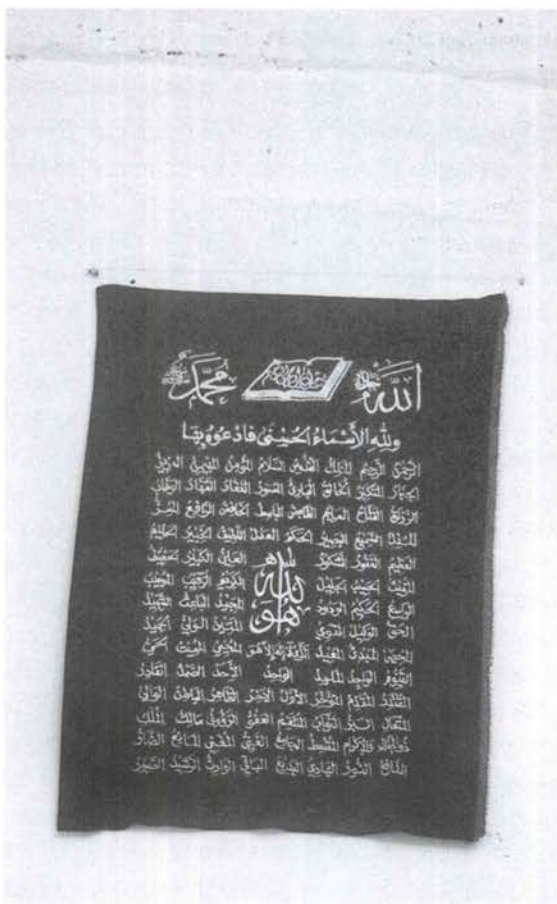 الله محمد
ولله الأسماء الحسنى فادعوه بها
الرحمن الرحيم الملك القدوس السلام المؤمن المهيمن العزيز
الجبار المتكبر الخالق البارئ المصور الغفار القهار الوهاب
الرزاق الفتاح العليم القابض الباسط الخافض الرافع المعز
المذل السميع البصير الحكم العدل اللطيف الخبير الحليم
العظيم الغفور الشكور العلي الكبير الحفيظ
المقيت الحسيب الجليل الكريم الرقيب المجيب
هو الله
الواسع الحكيم الودود المجيد الباعث الشهيد
الحق الوكيل القوي المتين الولي الحميد
المحصي المبدئ المعيد الذي لا إله إلا هو المحيي المميت الحي
القيوم الواجد الماجد الواحد الأحد الصمد القادر
المقتدر المقدم المؤخر الأول الآخر الظاهر الباطن الوالي
المتعال البر التواب المنتقم العفو الرؤوف مالك الملك
ذو الجلال والإكرام المقسط الجامع الغني المغني المانع الضار
النافع النور الهادي البديع الباقي الوارث الرشيد الصبور